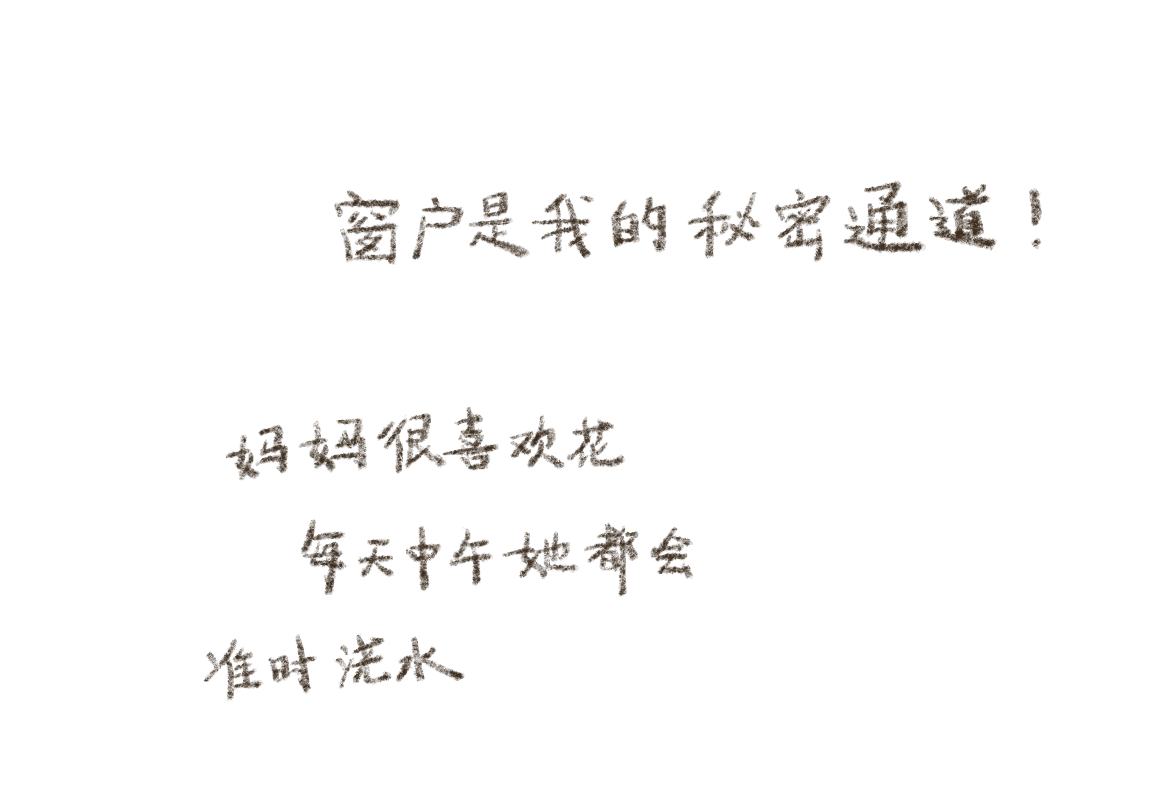 窗户是我的秘密通道！
妈妈很喜欢花
每天中午她都会
准时浇水